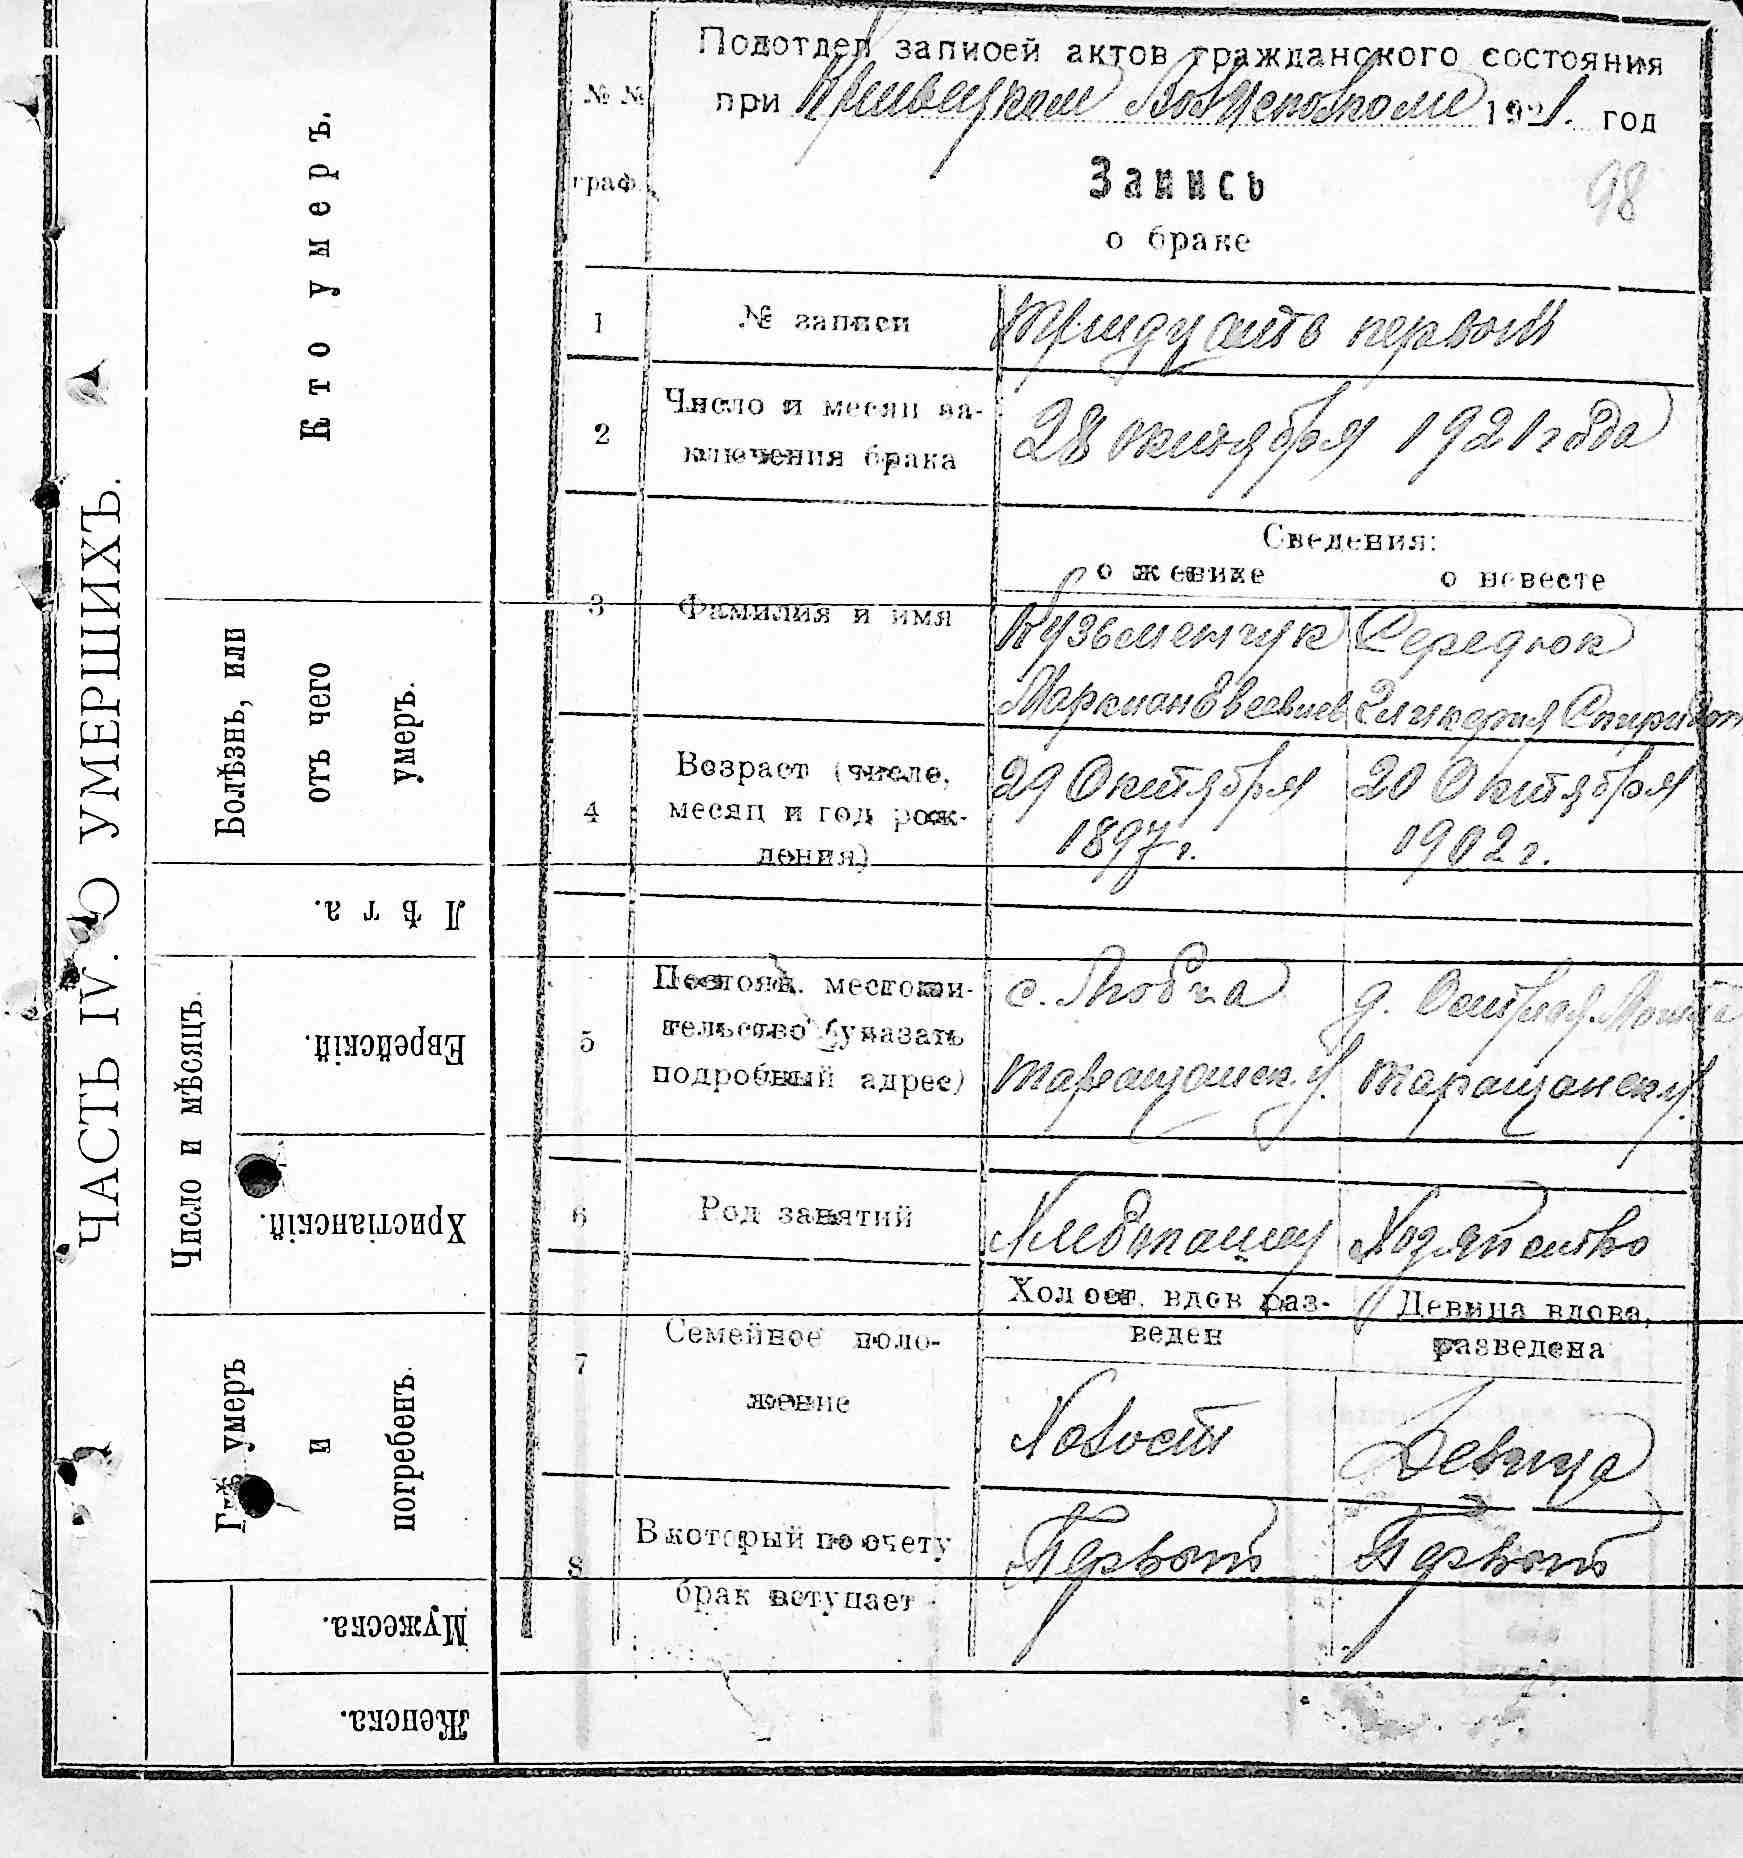 ЧАСТЬ IV. О УМЕРШИХЪ.
Кто умеръ.
Болѣзнь, или
отъ чего
умеръ.
Лѣта.
Число и мѣсяцъ
Еврейскій.
Христіанскій.
Гдѣ умеръ
и
погребенъ.
Мужеска.
Женска.
№ №
граф.
Подотдел записей актов гражданского состояния
при Кривецком Волисполкоме 1921. год
Запись
98
о браке
1 № записи Тридцать первый
2 Число и месяц за-
ключения брака 28 октября 1921 года
Сведения:
о женихе о невесте
3 Фамилия и имя Кузьменчук Середюк
Маркиан Гликерия Спиридон
4 Возраст (число, 29 Октября 20 Октября
месяц и год рож- 1897 г. 1902 г.
дения)
5 Постоян. местожи- с. д.
тельство (указать
подробный адрес) Таращанск. у. Таращанск у.
6 Род занятий Хлебопашец Хозяйство
7 Семейное поло-
жение
Холост. вдов раз- Девица вдова,
веден разведена
Холост Девица
8 В который по счету Первый Первый
брак вступает